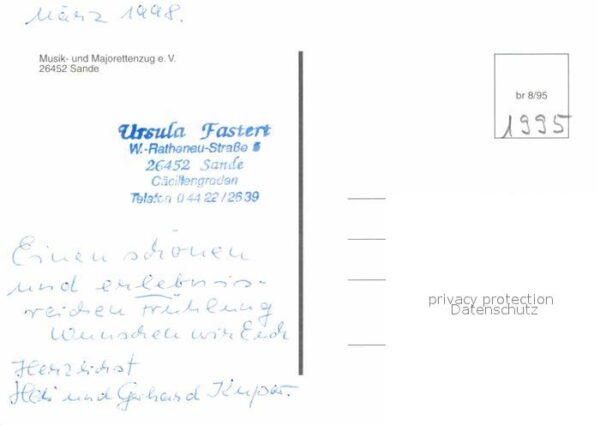 März 1998.
Musik- und Majorettenzug e. V.
26452 Sande
br 8/95
1995
Ursula Fastert
W.-Rathenau-Straße 5
26452 Sande
Cäciliengroden
Telefon 0 44 22 / 26 39
Einen schönen
und erlebnis-
reichen Frühling
wünschen wir Euch
Herzlichst
und Gerhard
privacy protection
Datenschutz